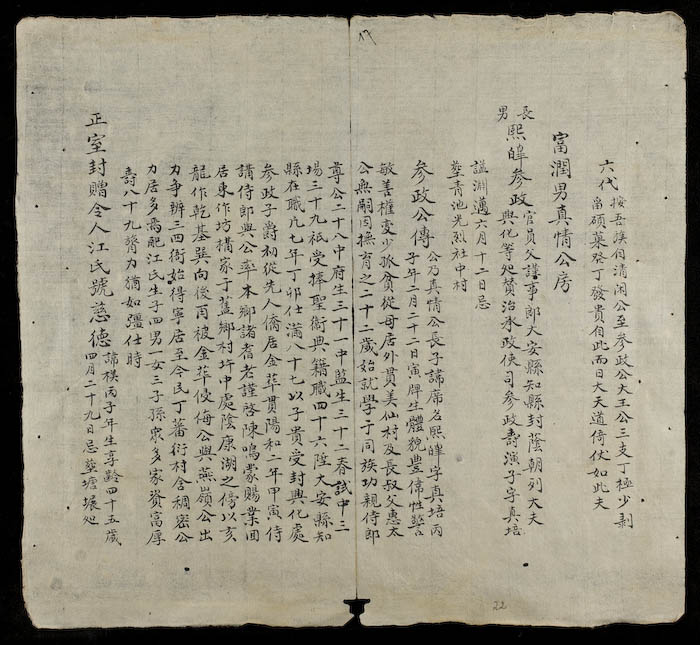 六代 按吾族自清閑公至參政公大王公三支丁極少剥
畲碩菓癸丁發貴自此而日大天道倚伏如此夫
富潤男真情公房
長男 熙皡參政 官員父講事郎大安縣知縣封蔭朝列大夫
興化等処賛治承政使司參政壽演子字真培
謚淵邁六月十二日忌
塟青池光烈社中村
參政公傳 公乃真情公長子諱席名熙皡字真培丙
子年二月二十二日寅牌生體貌豊偉性警
敏善權变少孤貧從母居外貫美仙村及長叔父惠太
公無嗣因撫育之二十二歲始就學于同族功親侍郎
尊公二十八中府生三十一中監生三十二春試中三
場三十九祇受捧聖衛典籍職四十六陞大安縣知
縣在職凢七年丁卯仕滿八十七以子貴受封興化處
參政子爵初從先人僑居金葬貫陽和二年甲寅侍
講侍郎與公率本鄉諸耆老謹啓陳鳴蒙賜業田
居東作坊構家于舊鄉村圷中處陰康湖之傍以亥
龍作乾基巽向後丙被金葬侵侮公與燕嶺公出
力争辨三四衙始得寧居至今民丁蕃衍村舍稠密公
力居多焉配江氏生子四男一女三子孫衆多家資富厚
壽八十九膂力猶如彊仕時
正室封贈令人江氏號慈德 諱模丙子年生享齡四十五歲
四月二十九日忌塟塘堰処
22